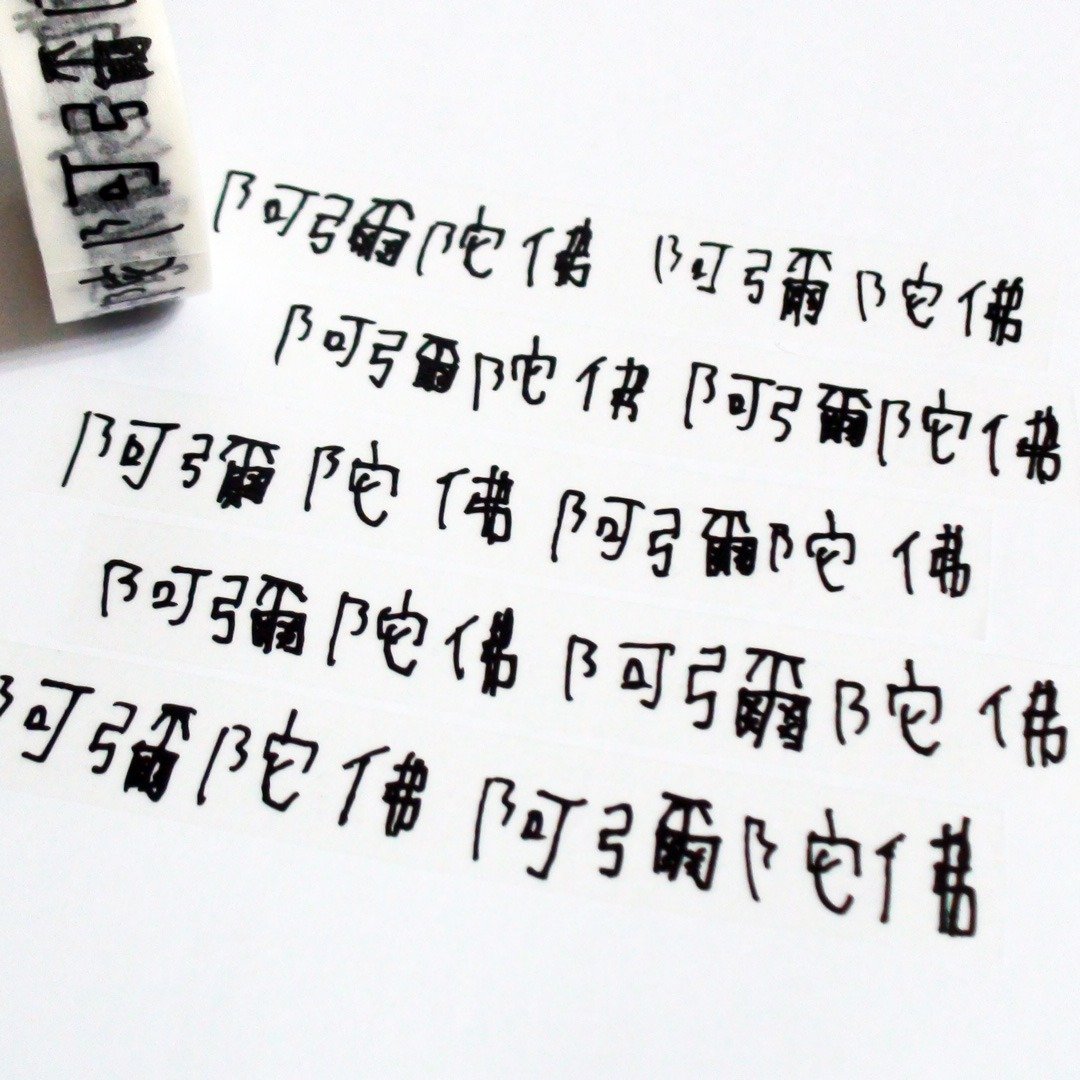 阿彌
阿彌陀佛 阿彌陀佛
阿彌陀佛 阿彌陀佛
阿彌陀佛 阿彌陀佛
阿彌陀佛 阿彌陀佛
阿彌陀佛 阿彌陀佛